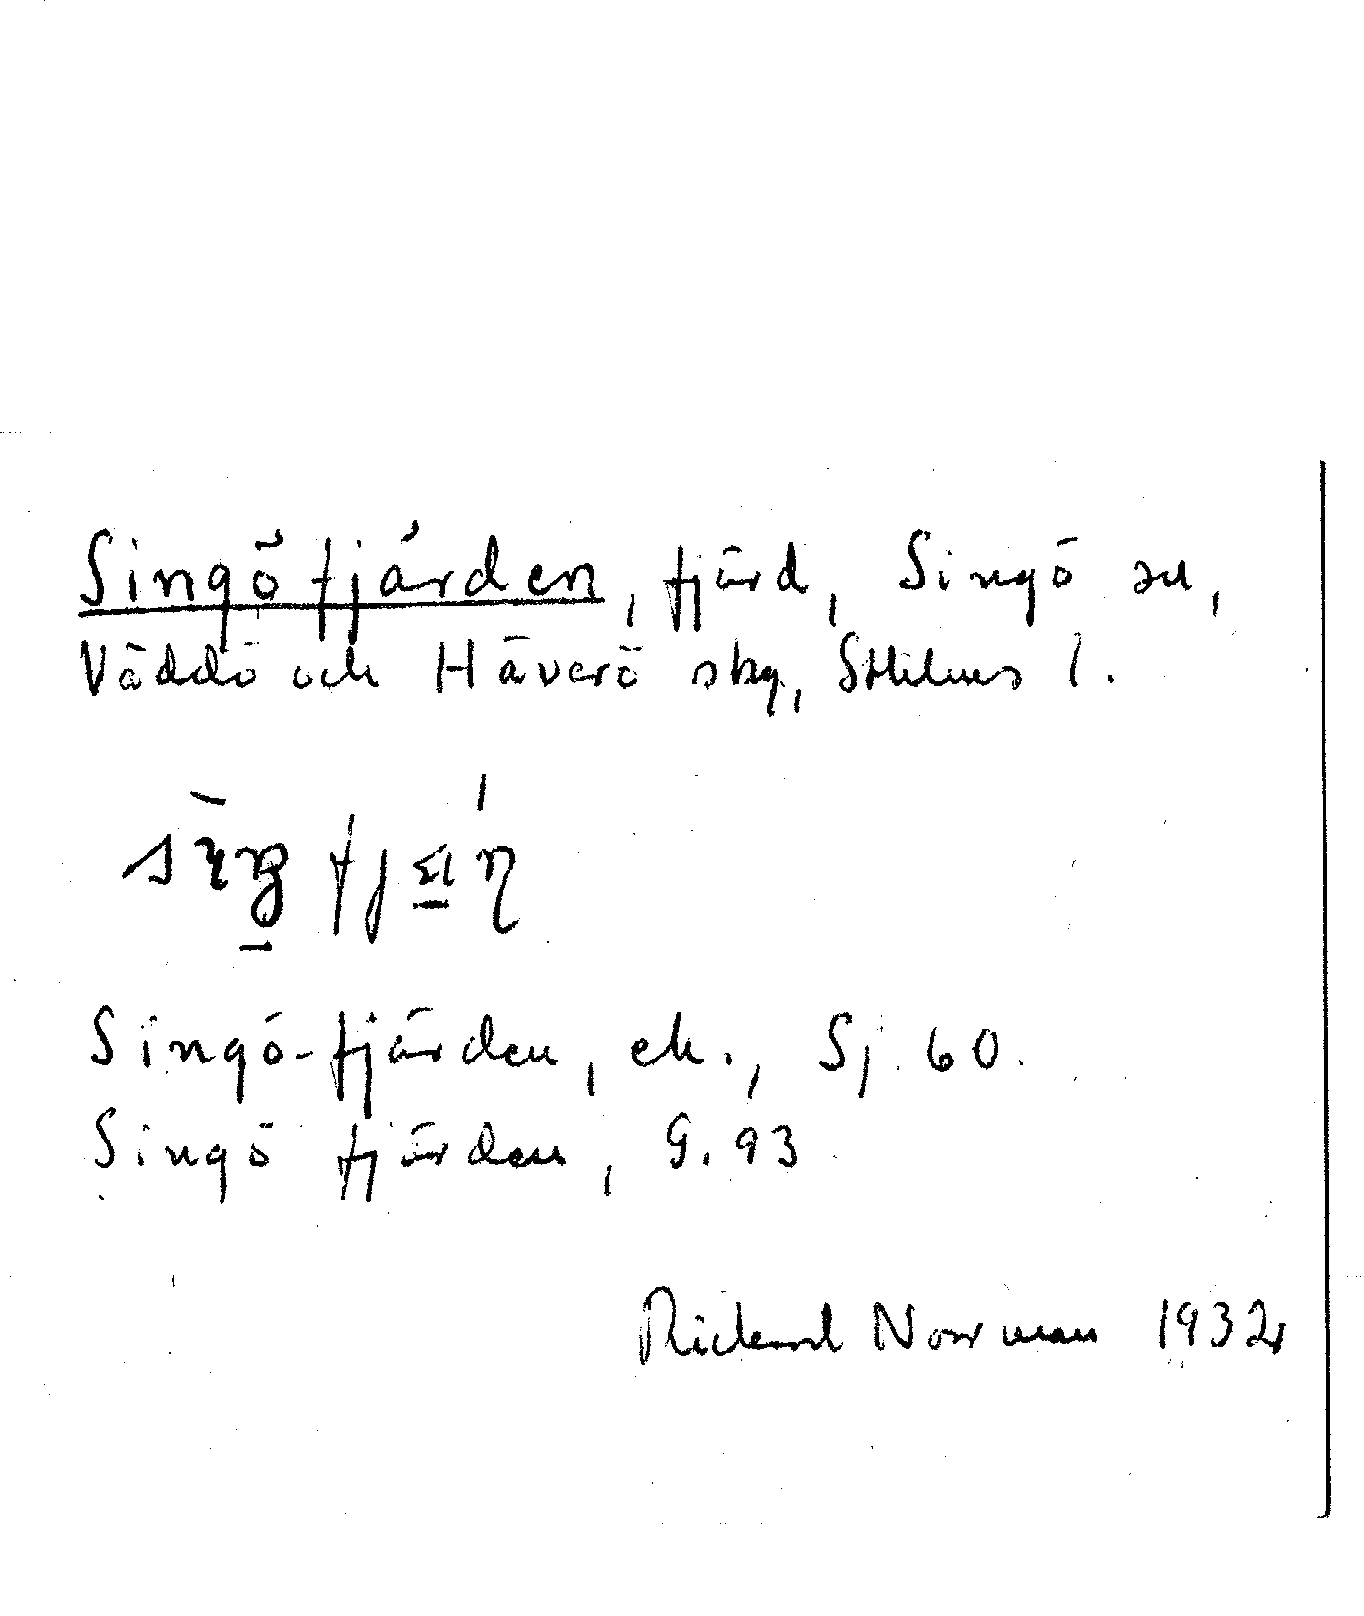 Singöfjärden, fjärd, Singö sn,
Väddö och Häverö skg, Sthlms l.
Singö-fjärden, ek., Sj. 60.
Singö fjärden, G. 93
Rickard Norrman 1932